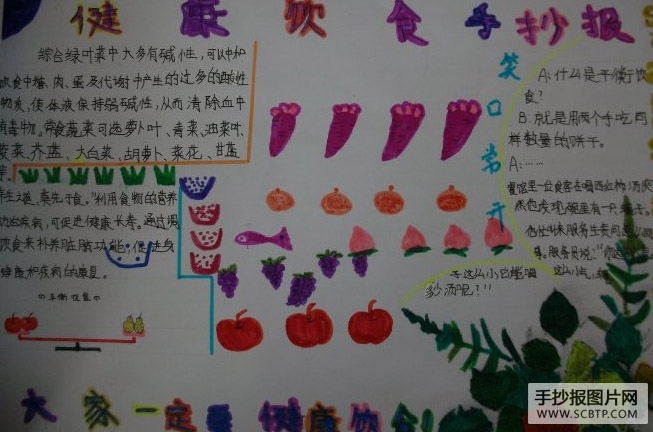 健康饮食手抄报
综合绿叶菜中大多有碱性,可以中和
饮食中糖、肉、蛋及代谢中产生的过多的酸性
物质,使体液保持弱碱性,从而清除血中
有毒物。常食蔬菜可选萝卜叶、青菜、油菜叶、
菠菜、芥蓝、大白菜、胡萝卜、菜花、甘蓝
等。
养生之道,莫先于食。"利用食物的营养
防治疾病,可促进健康长寿。通过调
饮食来补养脏腑功能,促进身
健康和疾病的康复。
平衡饮食
笑口常开
A:什么是平衡饮
食?
B:就是用两个手吃同
样数量的饼干。
A:……
餐馆里一位食客在喝西红柿汤突
然他发现碗里有一只
他叫来服务生
服务员说:"你
于这么小
汤呢!"
大家一定要健康饮食!
手抄报图片网
WWW.SCBTP.COM